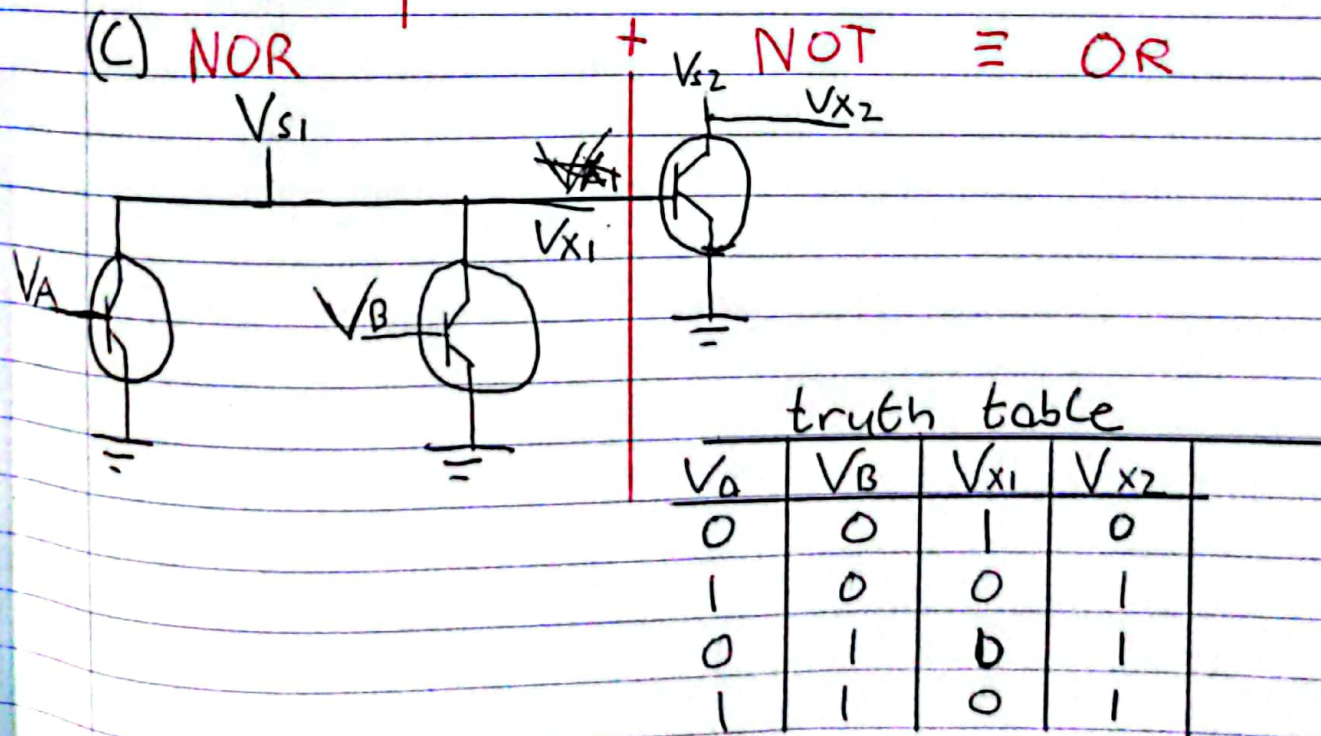 (C) NOR + NOT ≡ OR
VS1
VS2
VX2
VX1
VA
VB
truth table
Va VB VX1 VX2
0 0 1 0
1 0 0 1
0 1 0 1
1 1 0 1